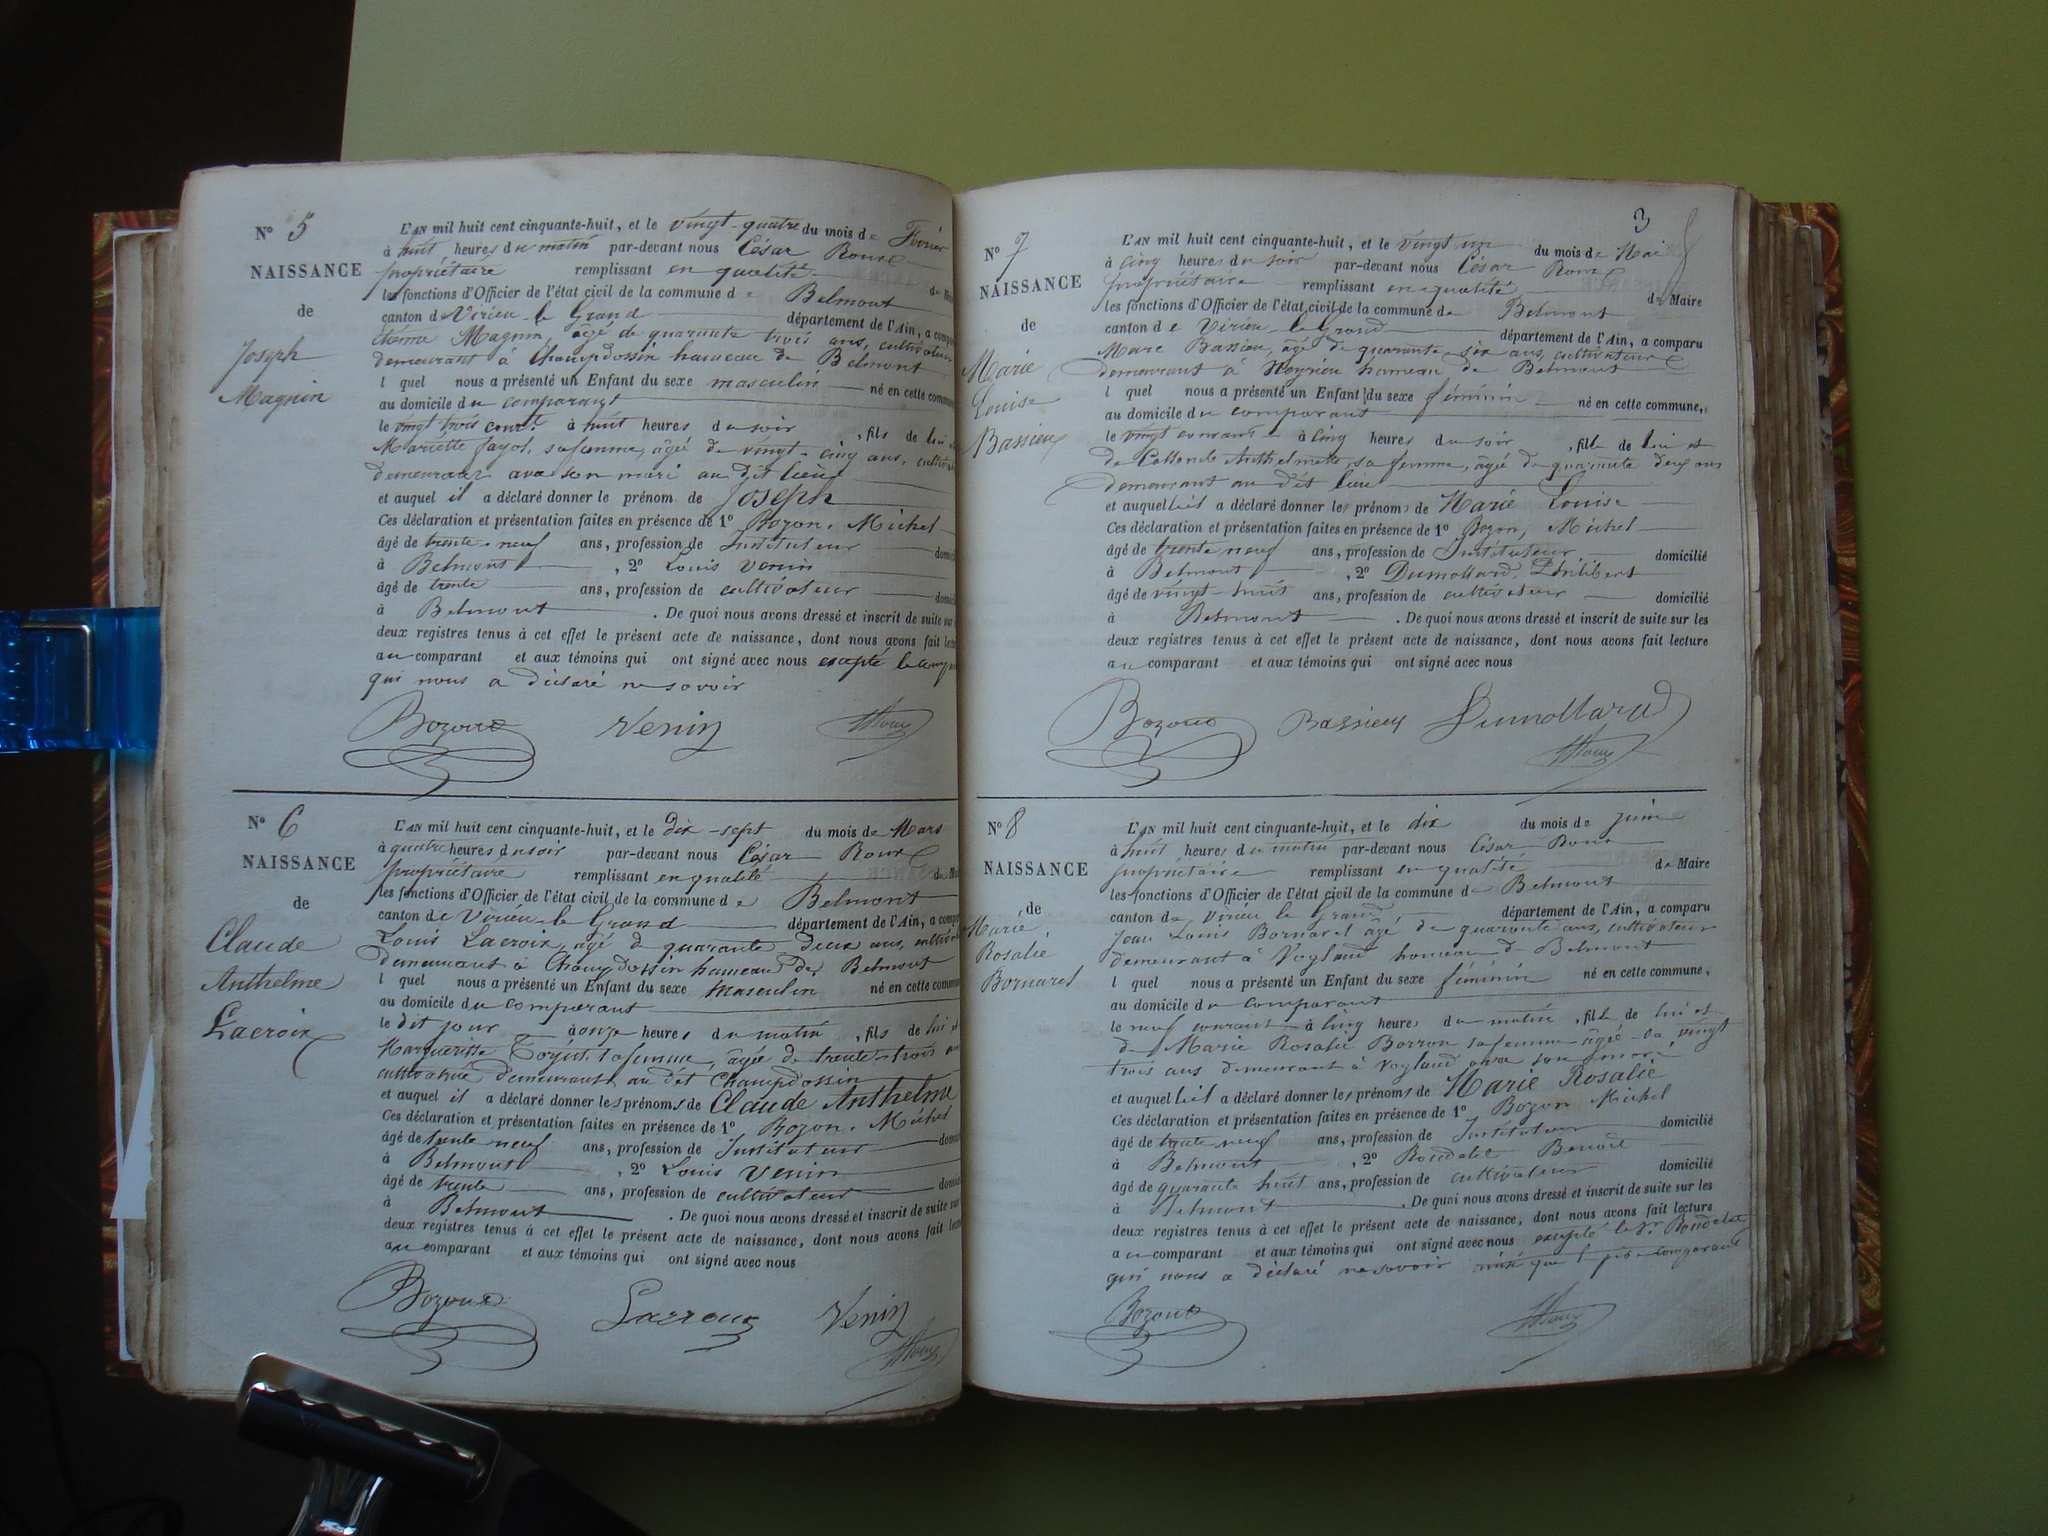 N° 5
NAISSANCE
de
Joseph
Magnin
L'AN mil huit cent cinquante-huit, et le vingt-quatre du mois de Février
à huit heures du matin par-devant nous César Roux
propriétaire remplissant en qualité de
les fonctions d'Officier de l'état civil de la commune de Belmont
canton de Virieu-le-Grand département de l'Ain, a comparu
Magnin âgé de quarante trois ans, cultivateur
demeurant à Champdossin hameau de Belmont
l quel nous a présenté un Enfant du sexe masculin né en cette commune
au domicile du comparant
le vingt trois cour.t à huit heures du soir, fils de lui et
Mariette Fayol, sa femme, âgé de vingt-cinq ans,
demeurant avec son mari au dit lieu
et auquel il a déclaré donner le prénom de Joseph
Ces déclaration et présentation faites en présence de 1° Bozon, Michel
âgé de trente-neuf ans, profession de Instituteur
à Belmont, 2° Louis Venin
âgé de trente ans, profession de cultivateur
à Belmont. De quoi nous avons dressé et inscrit de suite sur
deux registres tenus à cet effet le présent acte de naissance, dont nous avons fait
au comparant et aux témoins qui ont signé avec nous excepté le
qui nous a déclaré ne savoir
Bozon Venin
N° 6
NAISSANCE
de
Claude
Anthelme
Lacroix
L'AN mil huit cent cinquante-huit, et le dix-sept du mois de Mars
à quatre heures du soir par-devant nous César Roux
propriétaire remplissant en qualité de
les fonctions d'Officier de l'état civil de la commune de Belmont
canton de Virieu-le-Grand département de l'Ain, a
Louis Lacroix, âgé d quarante deux ans,
demeurant à Champdossin hameau de Belmont
l quel nous a présenté un Enfant du sexe masculin né en cette
au domicile du comparant
le dit jour à onze heures du matin, fils de lui et
Margueritte sa femme, âgée de trente-trois
demeurant au dit Champdossin
et auquel il a déclaré donner les prénoms de Claude Anthelme
Ces déclaration et présentation faites en présence de 1° Bozon, Michel
âgé de trente neuf ans, profession de Instituteur
à Belmont, 2° Louis Venin
âgé de trente ans, profession de cultivateur
à Belmont. De quoi nous avons dressé et inscrit de suite sur
deux registres tenus à cet effet le présent acte de naissance, dont nous avons fait
au comparant et aux témoins qui ont signé avec nous
Bozon Lacroix Venin
3
N° 7
NAISSANCE
de
Marie
Louise
Bassieux
L'AN mil huit cent cinquante-huit, et le vingt un du mois de Mai
à cinq heures du soir par-devant nous César Roux
propriétaire remplissant en qualité de Maire
les fonctions d'Officier de l'état civil de la commune de Belmont
canton de Virieu-le-Grand département de l'Ain, a comparu
Marc Bassieu, âgé de quarante-six ans, cultivateur
demeurant à hameau de Belmont
l quel nous a présenté un Enfant du sexe féminin né en cette commune,
au domicile du comparant
le vingt courant à cinq heures du soir, fille de lui et
de Anthelmette, sa femme, âgée de quarante deux ans
demeurant au dit lieu
et auquel il a déclaré donner les prénoms de Marie Louise
Ces déclaration et présentation faites en présence de 1° Bozon, Michel
âgé de trente neuf ans, profession de Instituteur domicilié
à Belmont, 2° Dumollard, Philibert
âgé de vingt-huit ans, profession de cultivateur domicilié
à Belmont. De quoi nous avons dressé et inscrit de suite sur les
deux registres tenus à cet effet le présent acte de naissance, dont nous avons fait lecture
au comparant et aux témoins qui ont signé avec nous
Bozon Bassieux Dumollard
N° 8
NAISSANCE
de
Marie
Rosalie
Bornarel
L'AN mil huit cent cinquante-huit, et le dix du mois de juin
à huit heures du matin par-devant nous César Roux
propriétaire remplissant en qualité de Maire
les fonctions d'Officier de l'état civil de la commune de Belmont
canton de Virieu le Grand département de l'Ain, a comparu
Jean Louis Bornarel âgé de quarante ans, cultivateur
demeurant à Vogland hameau d Belmont
l quel nous a présenté un Enfant du sexe féminin né en cette commune,
au domicile du comparant
le neuf courant à cinq heures du matin, fille de lui et
de Marie Rosalie Borron sa femme âgée de vingt
trois ans demeurant à Vogland avec son mari
et auquel il a déclaré donner les prénoms de Marie Rosalie
Ces déclaration et présentation faites en présence de 1° Bozon Michel
âgé de trente neuf ans, profession de Instituteur domicilié
à Belmont, 2° Rondelet Benoit
âgé de quarante huit ans, profession de cultivateur domicilié
à Belmont. De quoi nous avons dressé et inscrit de suite sur les
deux registres tenus à cet effet le présent acte de naissance, dont nous avons fait lecture
au comparant et aux témoins qui ont signé avec nous excepté le Sr Rondelet
qui nous a déclaré ne savoir ainsi que le père comparant
Bozon